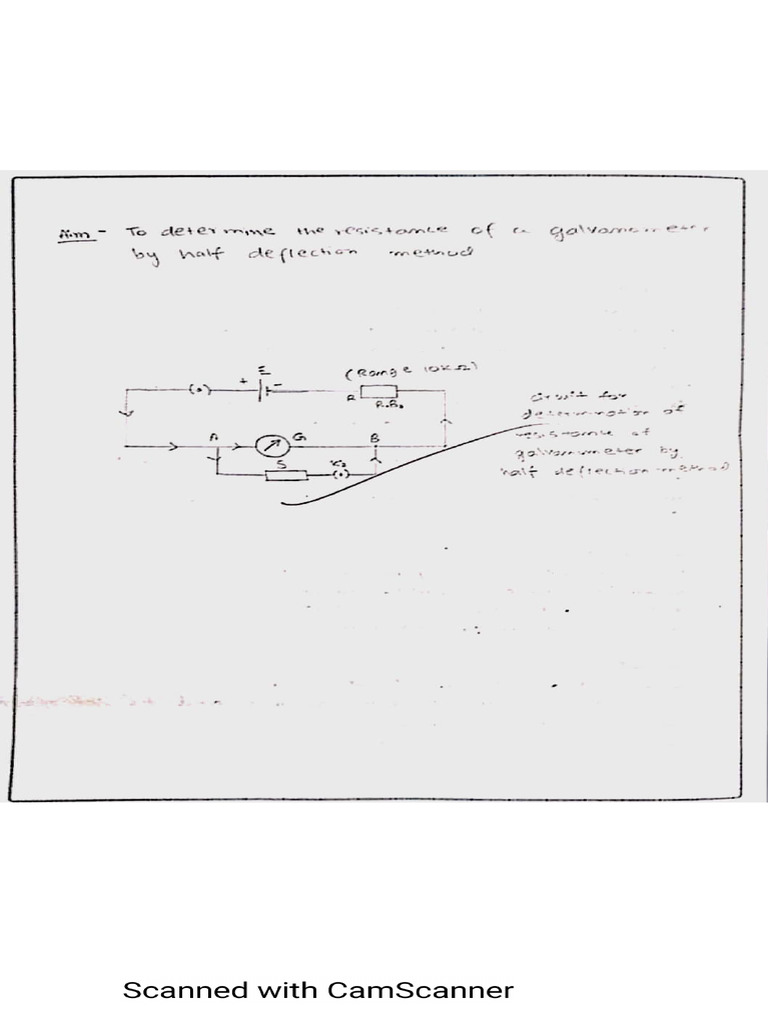 Aim - To determine the resistance of a galvanometer
by half deflection method
E
+ -
(Range 10KΩ)
(•)
R
R.B.
A
G
B
S
K2
(•)
circuit for
determination of
resistance of
galvanometer by
half deflection method
Scanned with CamScanner